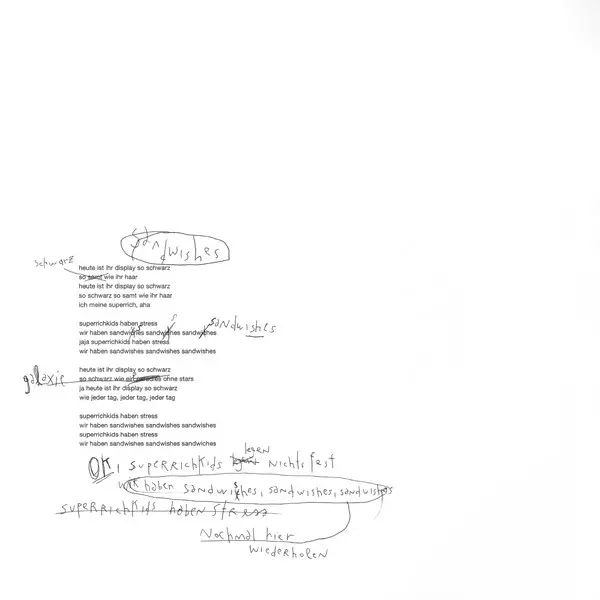 sandwishes
schwarz
heute ist ihr display so schwarz
so samt wie ihr haar
heute ist ihr display so schwarz
so schwarz so samt wie ihr haar
ich meine superrich, aha
superrichkids haben stress
s sandwishes
wir haben sandwishes sandwishes sandwishes
jaja superrichkids haben stress
wir haben sandwishes sandwishes sandwishes
heute ist ihr display so schwarz
galaxie
so schwarz wie ein paradies ohne stars
ja heute ist ihr display so schwarz
wie jeder tag, jeder tag, jeder tag
superrichkids haben stress
wir haben sandwishes sandwishes sandwishes
superrichkids haben stress
wir haben sandwishes sandwishes sandwiches
legen
OK, superrichkids legen nichts fest
wir haben sandwishes, sandwishes, sandwishes
superrichkids haben stress
nochmal hier
wiederholen